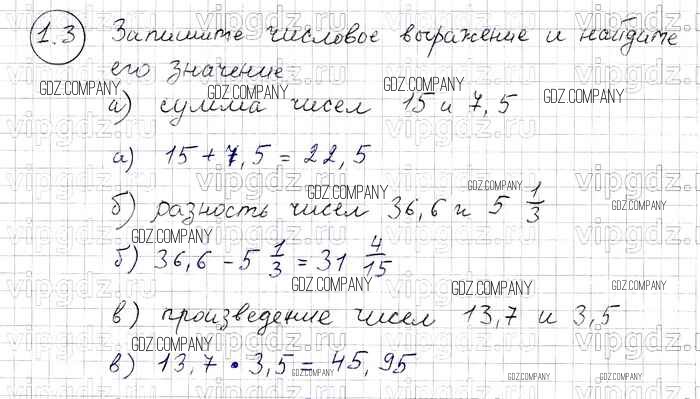 1.3 Запишите числовое выражение и найдите
его значение
а) сумма чисел 15 и 7,5
а) 15 + 7,5 = 22,5
б) разность чисел 36,6 и 5 1/3
б) 36,6 - 5 1/3 = 31 4/15
в) произведение чисел 13,7 и 3,5
в) 13,7 · 3,5 = 45,95
vipgdz.ru
GDZ.COMPANY